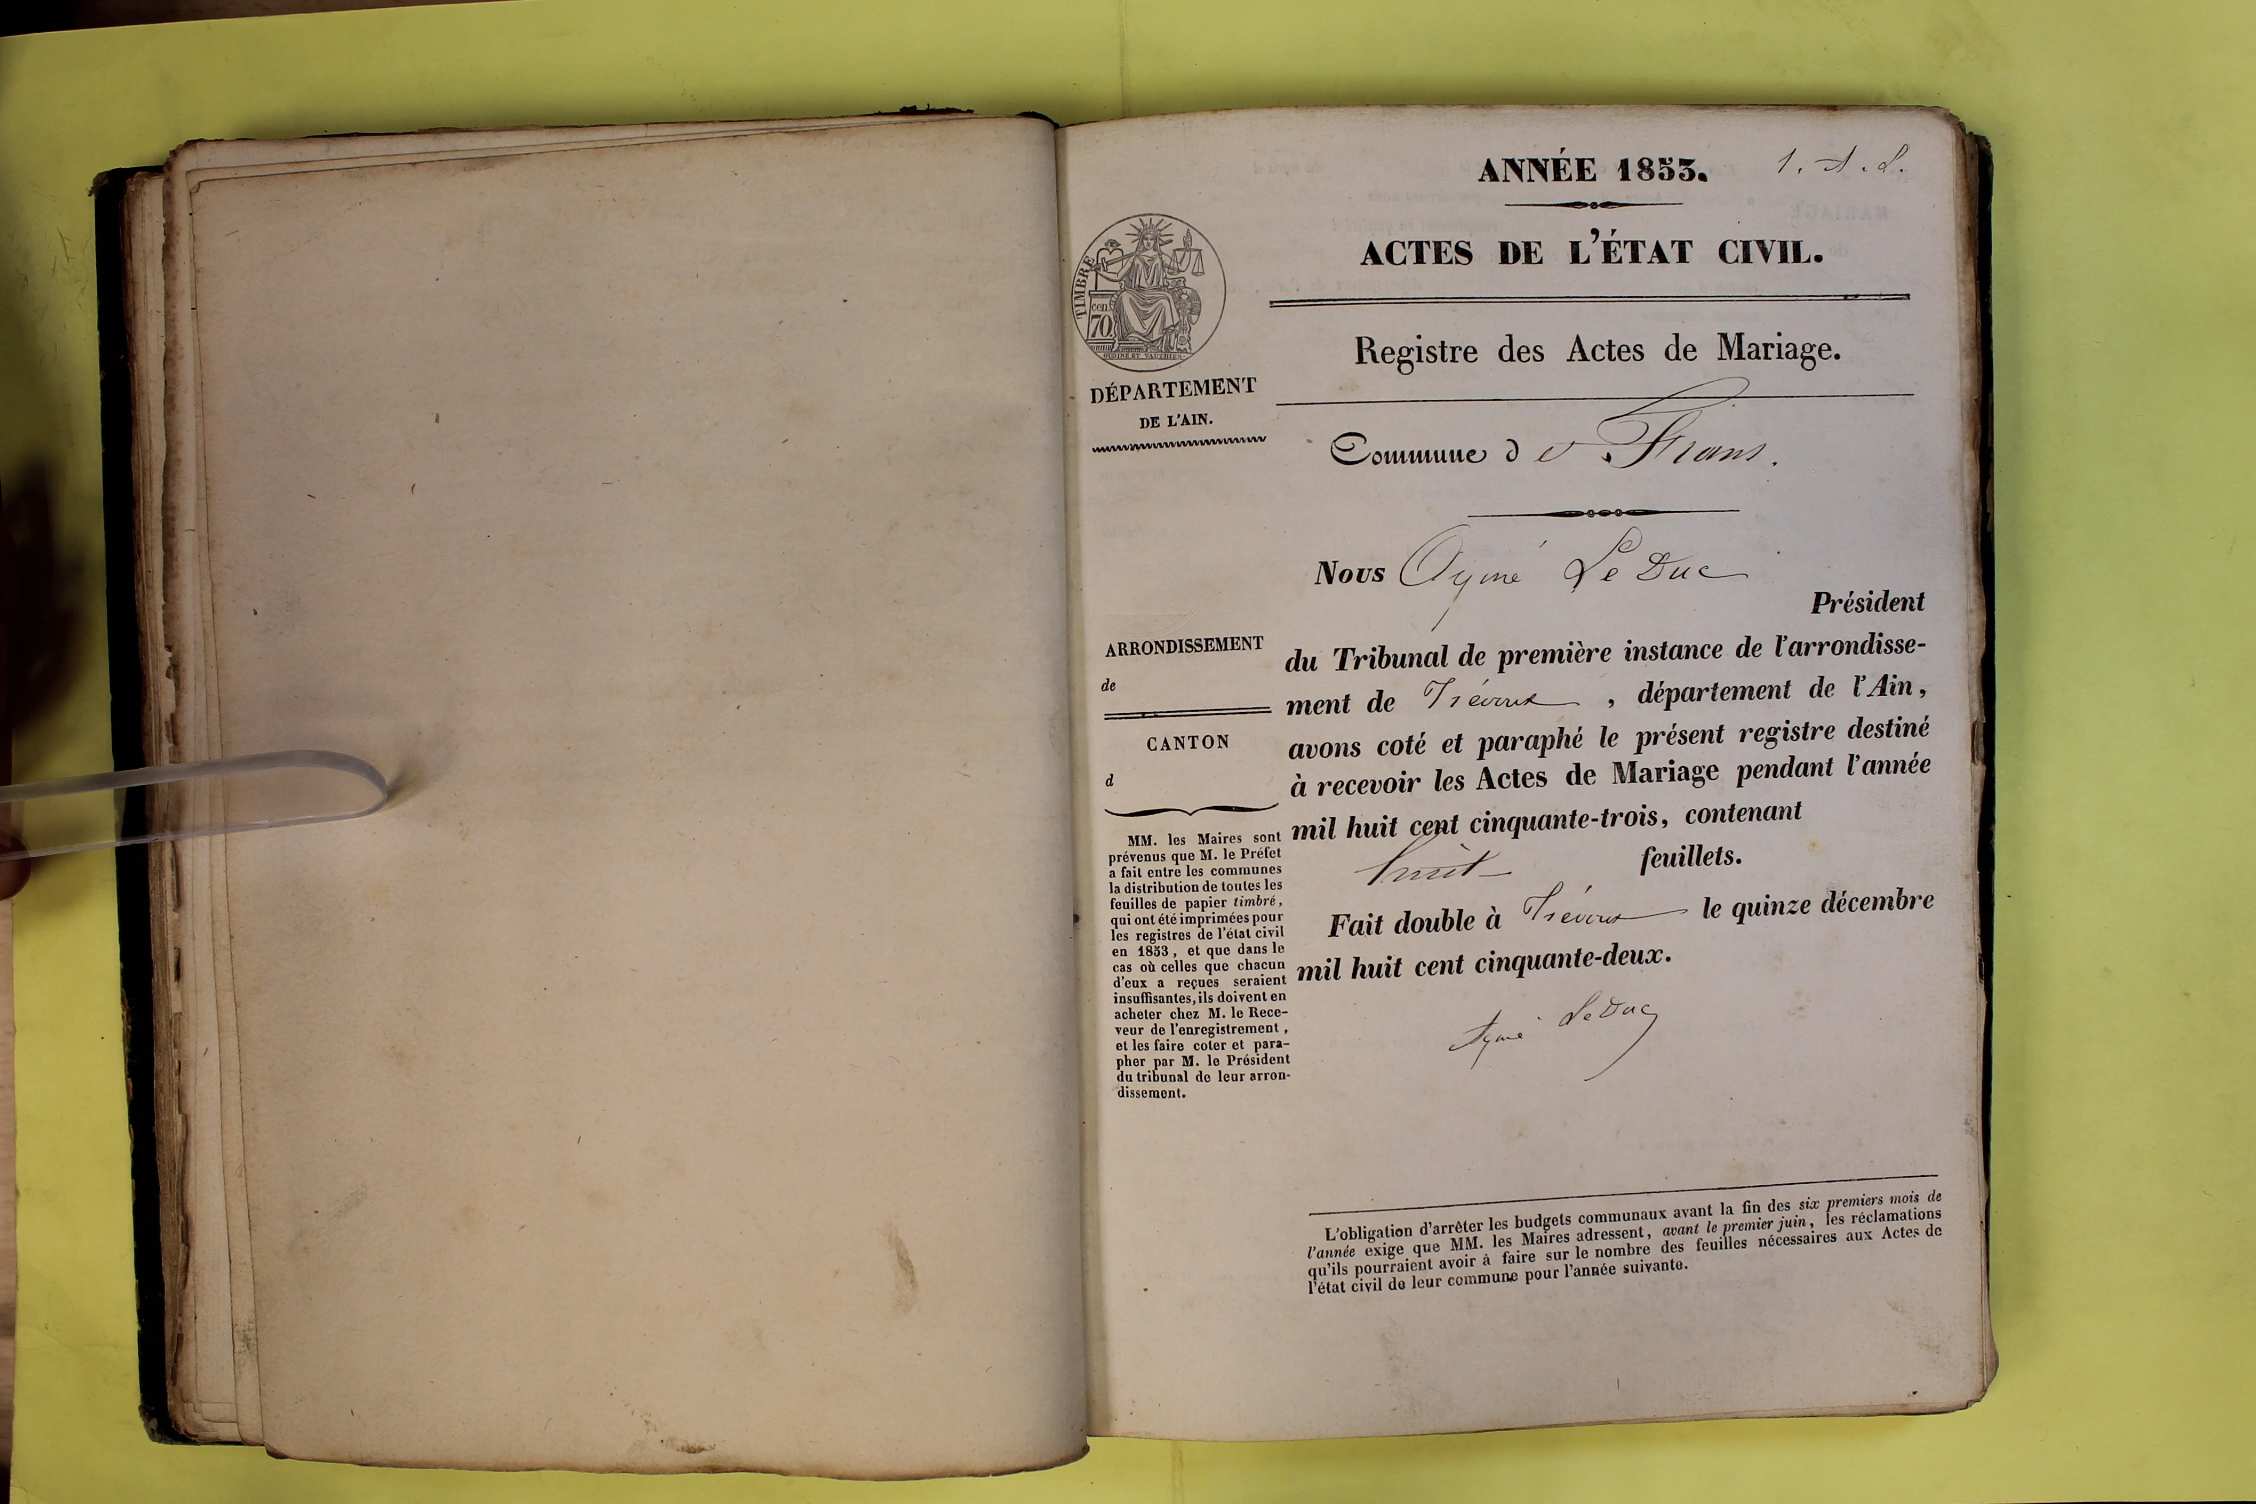 ANNÉE 1853.
1. A. L.
ACTES DE L'ÉTAT CIVIL.
TIMBRE
cen
70
Registre des Actes de Mariage.
DÉPARTEMENT
DE L'AIN.
Commune de Frans.
Nous Aymé Le Duc
Président
du Tribunal de première instance de l'arrondisse-
ment de Trévoux, département de l'Ain,
avons coté et paraphé le présent registre destiné
à recevoir les Actes de Mariage pendant l'année
mil huit cent cinquante-trois, contenant
huit feuillets.
Fait double à Trévoux le quinze décembre
mil huit cent cinquante-deux.
Aymé Le Duc
ARRONDISSEMENT
de
CANTON
d
MM. les Maires sont
prévenus que M. le Préfet
a fait entre les communes
la distribution de toutes les
feuilles de papier timbré,
qui ont été imprimées pour
les registres de l'état civil
en 1853, et que dans le
cas où celles que chacun
d'eux a reçues seraient
insuffisantes, ils doivent en
acheter chez M. le Rece-
veur de l'enregistrement,
et les faire coter et para-
pher par M. le Président
du tribunal de leur arron-
dissement.
L'obligation d'arrêter les budgets communaux avant la fin des six premiers mois de
l'année exige que MM. les Maires adressent, avant le premier juin, les réclamations
qu'ils pourraient avoir à faire sur le nombre des feuilles nécessaires aux Actes de
l'état civil de leur commune pour l'année suivante.